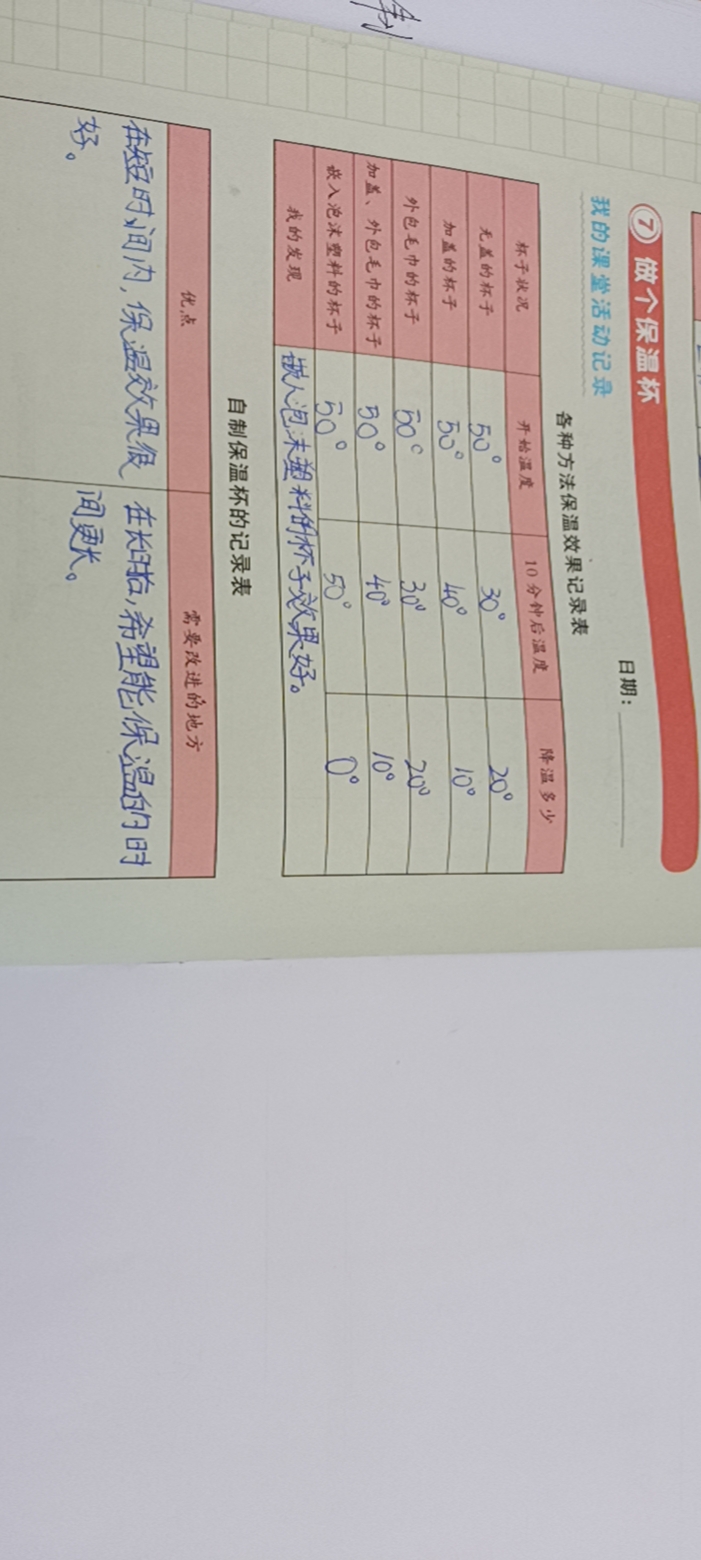 ⑦ 做个保温杯
我的课堂活动记录
日期：
各种方法保温效果记录表
杯子状况 开始温度 10分钟后温度 降温多少
无盖的杯子 50° 30° 20°
加盖的杯子 50° 40° 10°
外包毛巾的杯子 50° 30° 20°
加盖、外包毛巾的杯子 50° 40° 10°
嵌入泡沫塑料的杯子 50° 50° 0°
我的发现 嵌入泡沫塑料的杯子效果好。
自制保温杯的记录表
优点 需要改进的地方
在短时间内,保温效果很 在长时,希望能保温的时
好。 间更长。